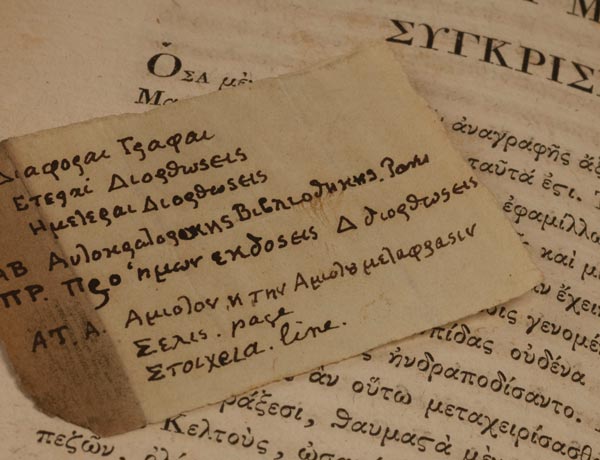 ΣΥΓΚΡΙΣ
ὍΣΑ
Διαφοραι Γραφαι
Ετεραι Διορθωσεις
Ημετεραι Διορθωσεις
ΑΒ Αυτοκρατορικης Βιβλιοθηκης.
ΠΡ. Προ ἡμων εκδοσεις Δ διορθωσεις
ΑΤ. Α. Αμιοτον, η την Αμιοτου μεταφρασιν
Σελις. page
Στοιχεια. line.
ἀναγραφῆς ἀξ
ταῦτά ἐϛι. Τ
ἐφαμίλλω
καὶ
ἔχειν
γενομέν
πίδας οὐδένα
ἠνδραποδίσαντο.
ἂν οὕτω μεταχειρίσασθ
ράξεσι, θαυμαϛὰ μὲν
Κελτοὺς,
πεζῶν,